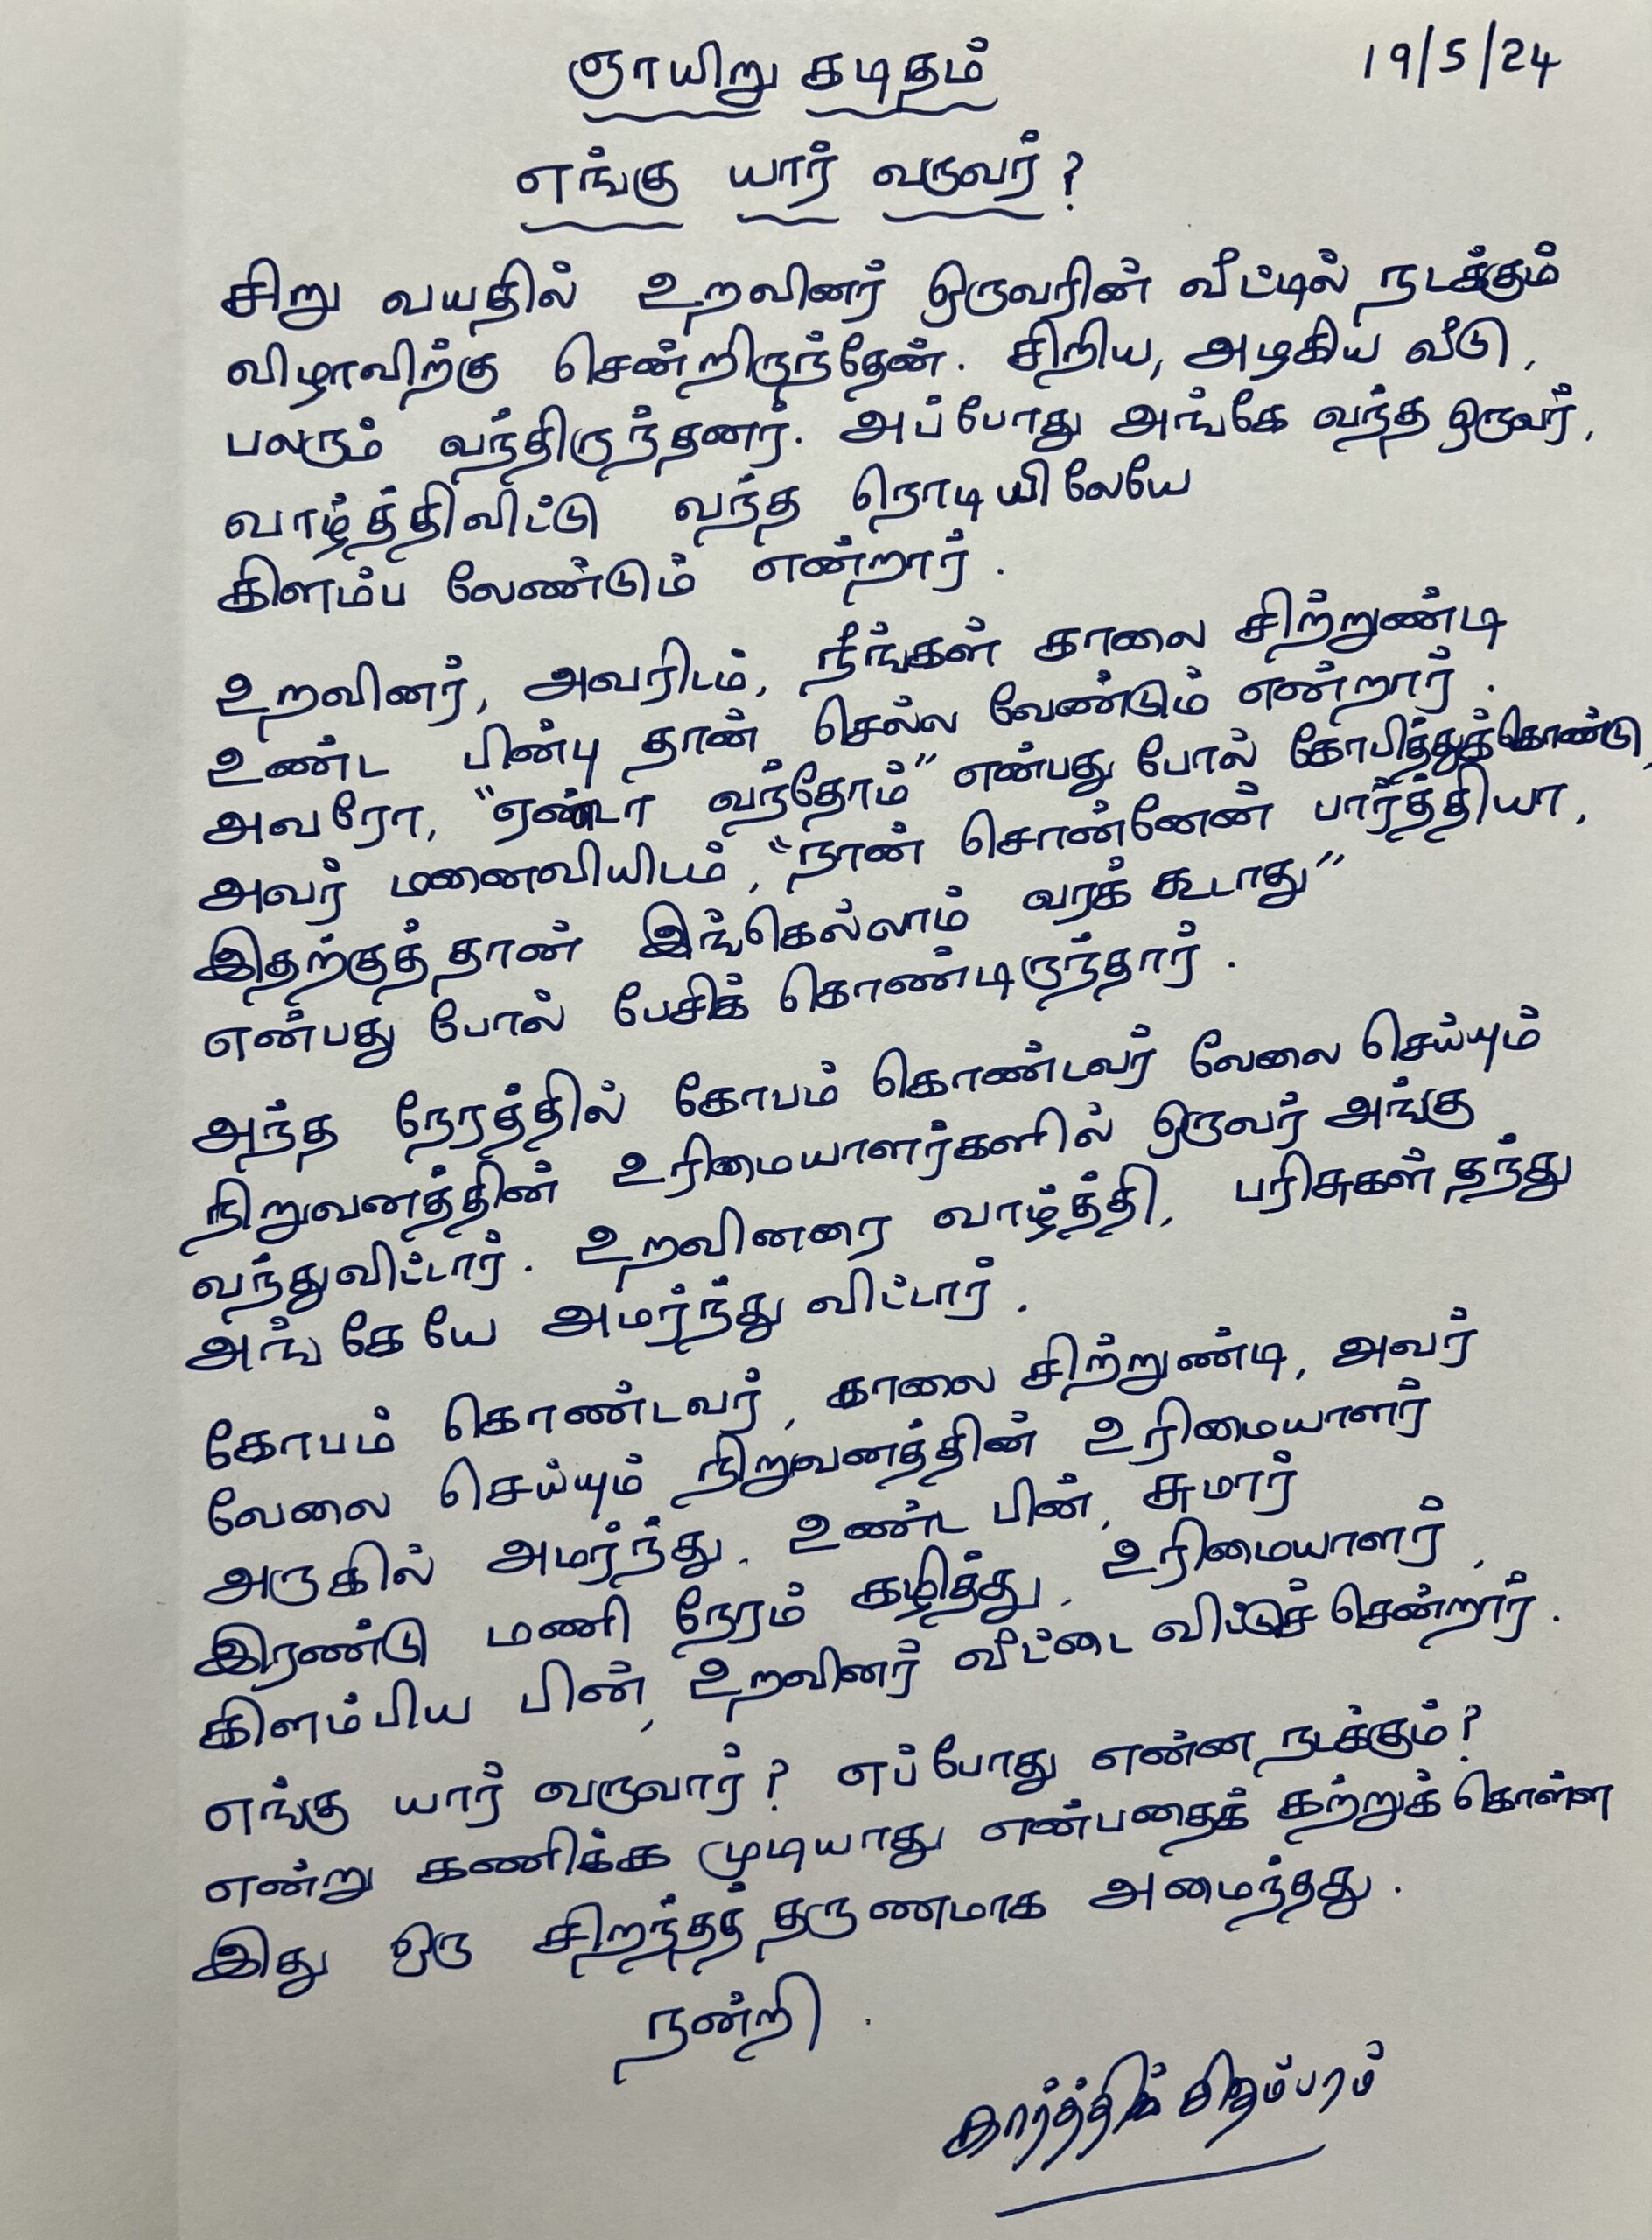 19/5/24
ஞாயிறு கடிதம்
எங்கு யார் வருவர்?
சிறு வயதில் உறவினர் ஒருவரின் வீட்டில் நடக்கும்
விழாவிற்கு சென்றிருந்தேன். சிறிய, அழகிய வீடு,
பலரும் வந்திருந்தனர். அப்போது அங்கே வந்த ஒருவர்,
வாழ்த்திவிட்டு வந்த நொடியிலேயே
கிளம்ப வேண்டும் என்றார்.
உறவினர், அவரிடம், நீங்கள் காலை சிற்றுண்டி
உண்ட பின்பு தான் செல்ல வேண்டும் என்றார்.
அவரோ, "ஏண்டா வந்தோம்" என்பது போல் கோபித்துக்கொண்டு,
அவர் மனைவியிடம், "நான் சொன்னேன் பார்த்தியா,
இதற்குத் தான் இங்கெல்லாம் வரக் கூடாது"
என்பது போல் பேசிக் கொண்டிருந்தார்.
அந்த நேரத்தில் கோபம் கொண்டவர் வேலை செய்யும்
நிறுவனத்தின் உரிமையாளர்களில் ஒருவர் அங்கு
வந்துவிட்டார். உறவினரை வாழ்த்தி, பரிசுகள் தந்து
அங்கேயே அமர்ந்து விட்டார்.
கோபம் கொண்டவர், காலை சிற்றுண்டி, அவர்
வேலை செய்யும் நிறுவனத்தின் உரிமையாளர்
அருகில் அமர்ந்து, உண்ட பின், சுமார்
இரண்டு மணி நேரம் கழித்து, உரிமையாளர்,
கிளம்பிய பின், உறவினர் வீட்டை விட்டுச் சென்றார்.
எங்கு யார் வருவார்? எப்போது என்ன நடக்கும்?
என்று கணிக்க முடியாது என்பதைக் கற்றுக் கொள்ள
இது ஒரு சிறந்தத் தருணமாக அமைந்தது.
நன்றி.
கார்த்திக் சிதம்பரம்